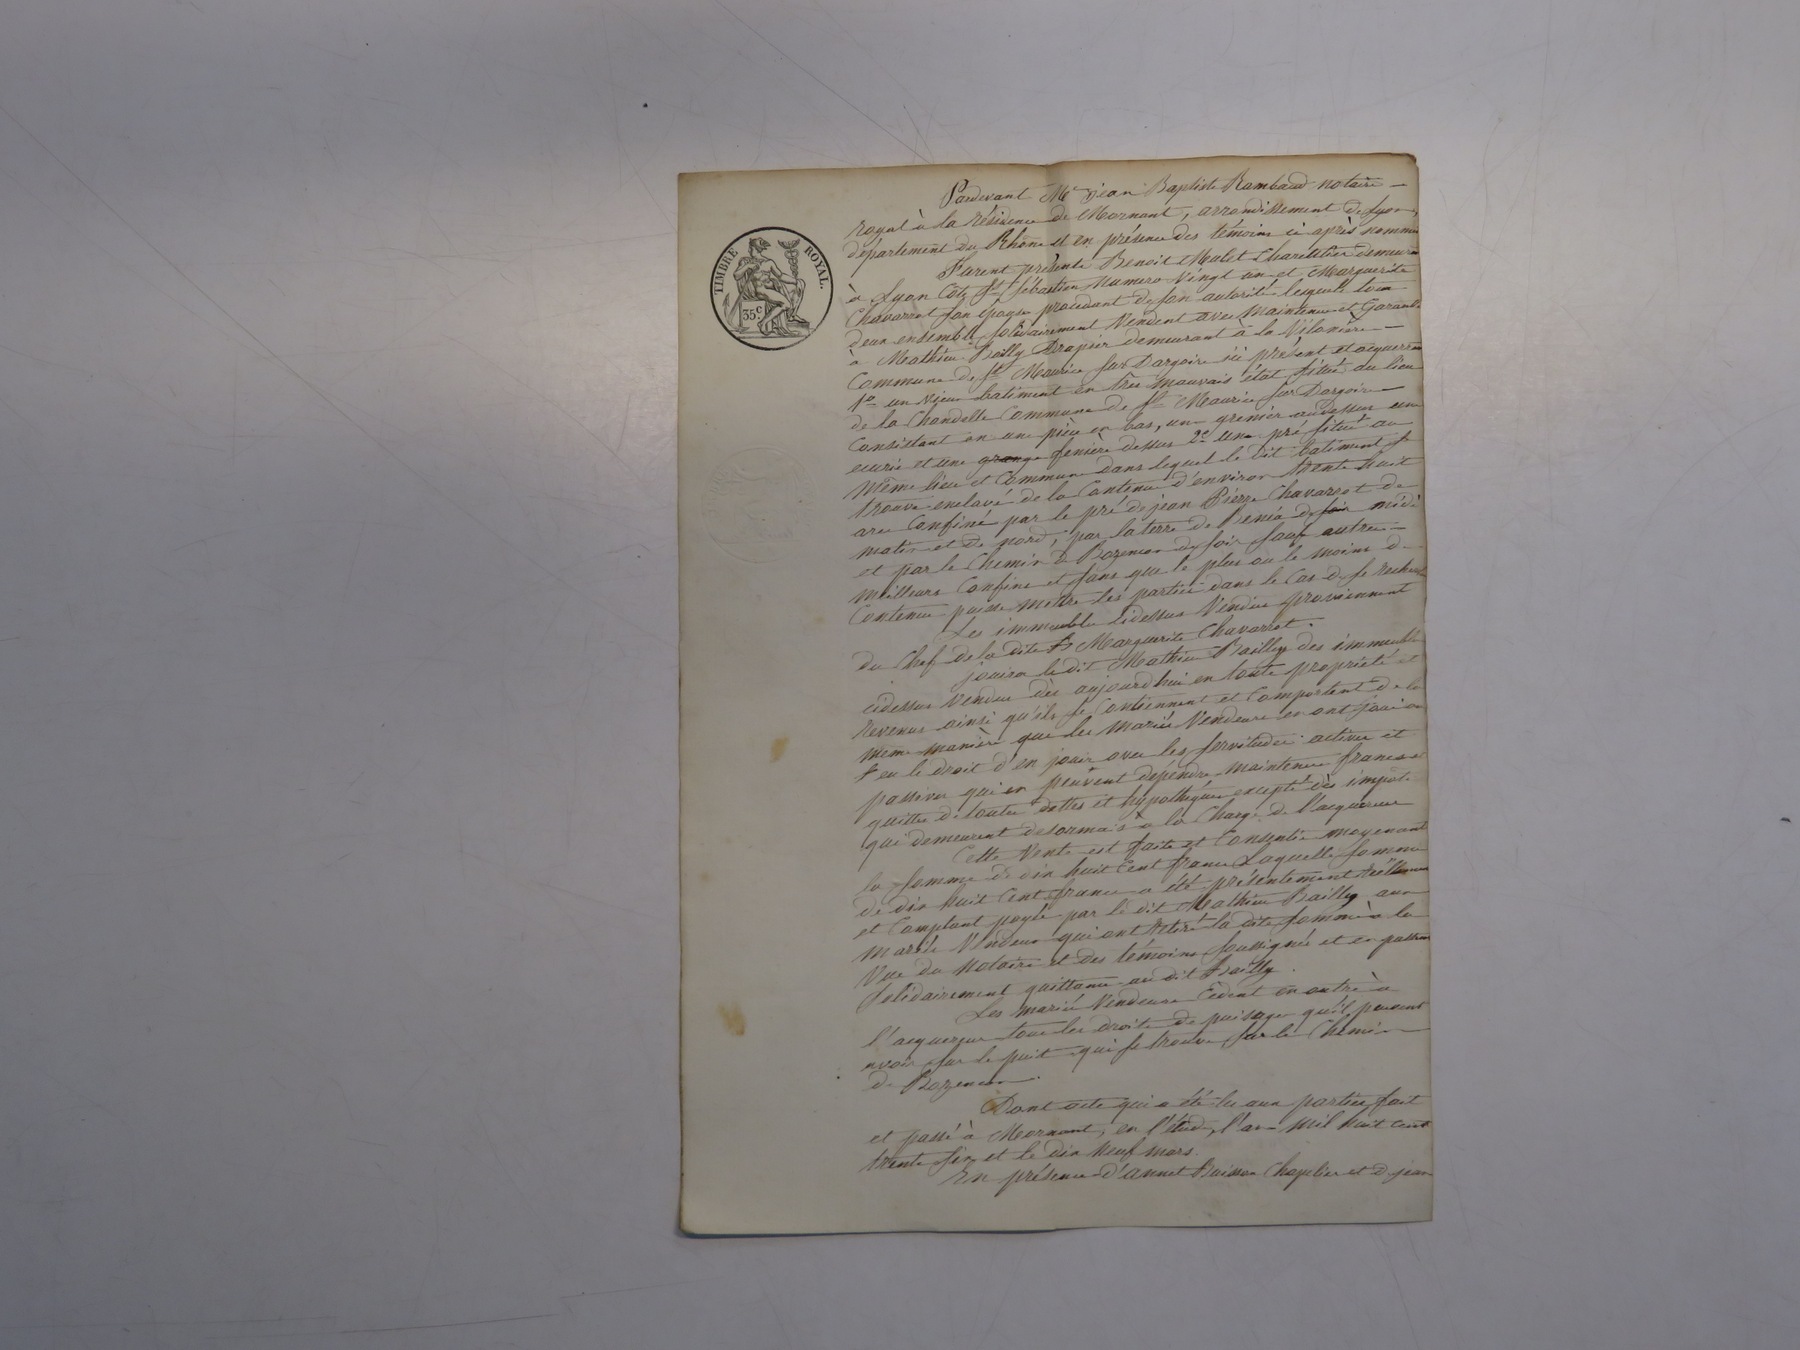 TIMBRE ROYAL.
35c.
Pardevant Me jean Baptiste Rambaud notaire —
royal à la résidence de Mornant, arrondissement de Lyon,
département du Rhône et en présence des témoins ci après nommés
Furent présents Benoit Mulet Charcutier demeurant
à Lyon Côte St Sébastien Numero Vingt un et Marguerite
Chavarrot son épouse procedant de son autorité lesquels tous
deux ensemble solidairement Vendent avec Maintenue et Garantie
à Mathieu Bailly Drapier demeurant à la Vilonière —
Commune de St Maurice sur Dargoire ici présent et acquereur
1o un vieux batiment en très mauvais état situé au lieu
de la Chandelle Commune de St Maurice sur Dargoire —
Consistant en une pièce en bas, un grenier audessus une
ecurie et une grange fenière dessus 2o une pré situé au
même lieu et Commune dans lequel le dit batiment se
trouve enclavé de la Contenue d'environ trente huit
ares Confiné par le pré de jean Pierre Chavarrot de
matin et de nord, par la terre de de soir midi
et par le Chemin de Bozencon de soir sauf autres —
meilleurs Confins et sans que le plus ou le moins de
Contenue puisse mettre les parties dans le Cas de se rechercher
Les immeubles cidessus Vendus proviennent
du Chef de la dite Marguerite Chavarrot.
jouira le dit Mathieu Bailly des immeubles
cidessus Vendus dès aujourd'hui en toute propriété et
revenus ainsi qu'ils se Contiennent et Comportent de la
même manière que les mariés Vendeurs en ont joui ou
eu le droit d'en jouir avec les servitudes actives et
passives qui en peuvent dépendre maintenus francs et
quittes de toutes dettes et hypothèques excepté des impots
qui demeurent desormais à la Charge de l'acquereur
Cette Vente est faite et Consentie moyenant
la somme de dix huit Cent francs Laquelle somme
de dix huit Cent francs a été présentement réellement
et Comptant payée par le dit Mathieu Bailly aux
mariés Vendeurs qui ont retiré la dite somme à la
Vue du Notaire et des témoins soussignés et en passent
solidairement quittance au dit Bailly.
Les mariés Vendeurs Cèdent en outre à
l'acquereur tous les droits de puisage qu'ils peuvent
avoir sur le puit qui se trouve sur le Chemin —
de Bozencon.
Dont acte qui a été lu aux parties fait
et passé à Mornant, en l'étude, l'an Mil huit cent
trente six et le dix Neuf mars.
En présence d'annet Buisson Chapelier et de jean